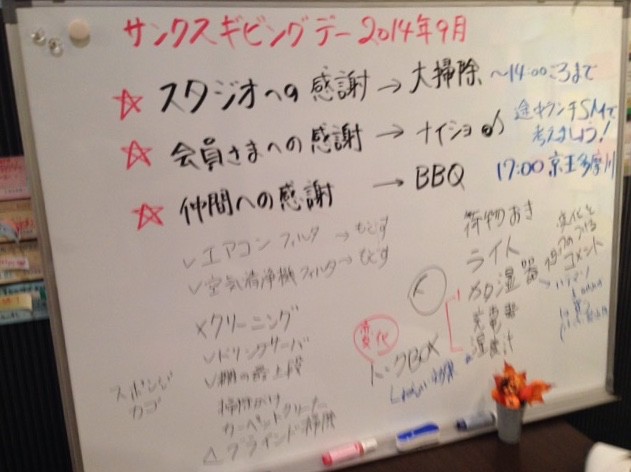 サンクスギビングデー2014年9月
☆ スタジオへの感謝 → 大掃除 〜14:00ごろまで
☆ 会員さまへの感謝 → ナイショ♪
途中ランチSMで
考えましょう!
☆ 仲間への感謝 → BBQ 17:00 京王多摩川
✓エアコンフィルタ → もどす
✓空気清浄機フィルタ → もどす
×クリーニング
✓ドリンクサーバ
✓棚の最上段
掃除かけ
カーペットクリーナー
△ブラインド掃除
スポンジ
カゴ
変化
トークBOX
荷物おき
ライト
加湿器
充電器
湿度計
変化を
コメント